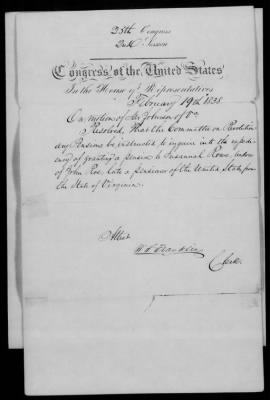 25th Congress
2nd Session
Congress of the United States
In the House of Representatives
February 19th 1838
On motion of Mr Johnson of Va
Resolved, That the Committee on Revolution
ary Pensions be instructed to inquire into the expedi
ency of granting a pension to Susannah Rowe, widow
of John Roe, late a pensioner of the United States, from
the State of Virginia.
Attest
W S Franklin
Clerk